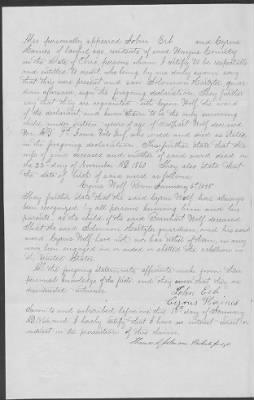 Also personally appeared John Erb and Cyrus
Haines of lawful age residents of said Wayne County
in the State of Ohio persons whom I certify to be respectable
and entitled to credit who being by me duly sworn say
that they were present and saw Solomon guar-
dian aforesaid sign the foregoing declaration. They further
say that they are acquainted with Cyrus Wolf the ward
of the declarant, and know him to be the only surviving
child under sixteen years of age of Bernhart Wolf deceased
Iowa Vols Inf who served and died as stated
in the foregoing declaration. They further state that the
wife of said deceased and mother of said ward died on
the 23d day of November AD 1861. They also state that
the date of birth of said ward is as follows
Cyrus Wolf Born January 5th
They further state that the said Cyrus Wolf has always
been recognized by all persons knowing him and his
parents, as the child of the said Bernhart Wolf deceased
That the said Solomon guardian, and his said
ward Cyrus Wolf have not, nor has either of them in any
way been engaged in or aided or abetted the rebellion in
the United States.
All the foregoing statements affiants make from their
personal knowledge of the facts and they swear that they are
disinterested witnesses
John Erb
Cyrus Haines
Sworn to and subscribed before me this day of January
AD and I hereby certify that I have no interest direct or
indirect in the prosecution of this claim
Probate Judge